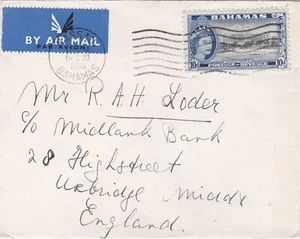 BY AIR MAIL
PAR AVION
BAHAMAS
BAHAMAS
POSTAGE & REVENUE
10d 10d
Mr R. A H Loder
c/o Midlank Bank
28 Highstreet
Uxbridge Middx
England.